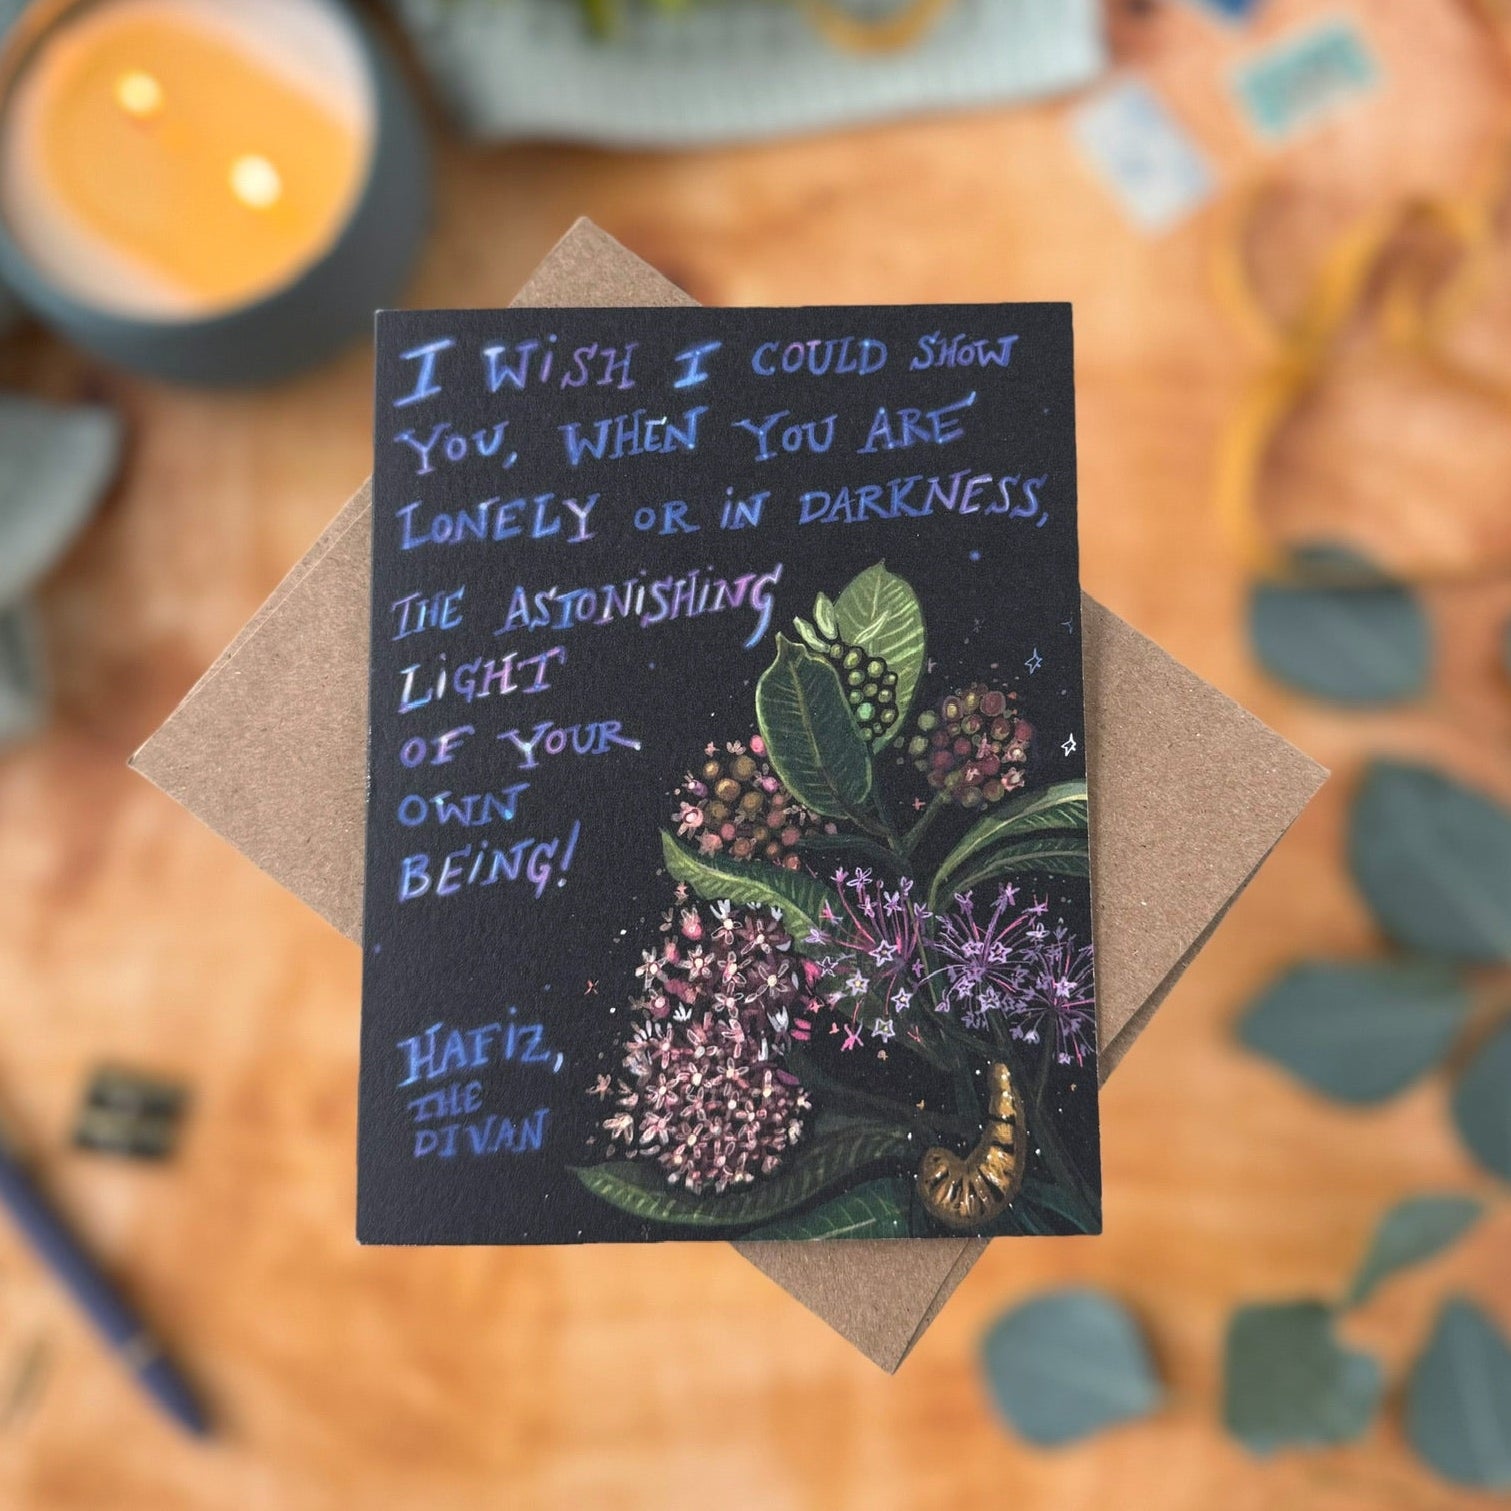 I WiSH I COULD SHOW
YOU, WHEN YOU ARE
LONELY OR iN DARKNESS,
THE ASTONiSHiNG
LiGHT
OF YOUR
OWN
BEiNG!
HAFiZ,
THE
DIVAN